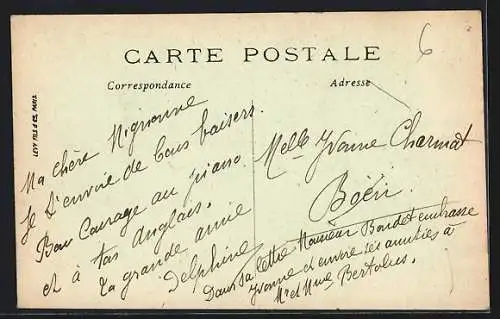 CARTE POSTALE
Correspondance
Adresse
6
LEVY FILS & Cie, PARIS
Ma chère Mignonne
Je t'envoie de bons baisers.
Bon Courage au piano
et à ton Anglais.
ta grande amie
Delphine
Melle Yvonne Charmat
Boën
Dans sa lettre Monsieur Boudet embrasse
Yvonne et envoie ses amitiés à
Mr et Mme Bertolus.